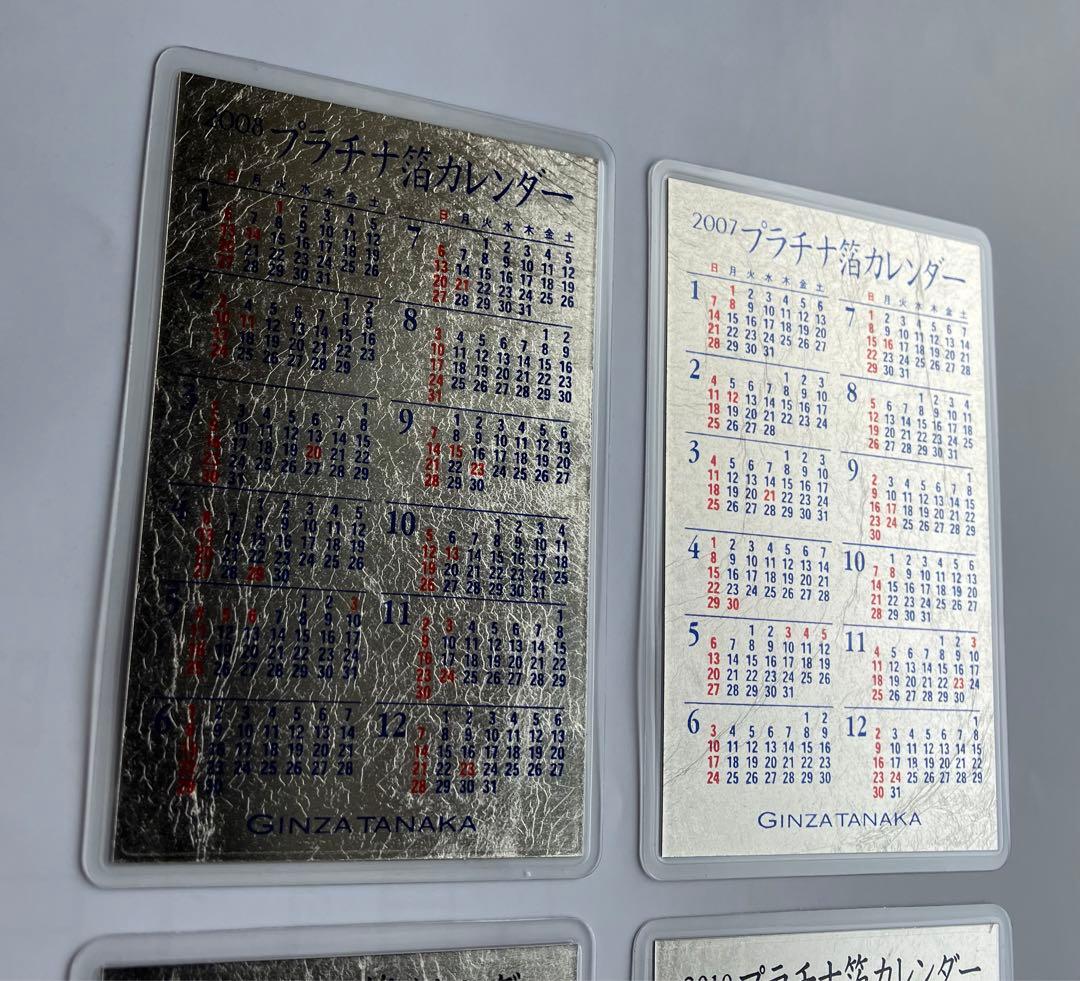 2008 プラチナ箔カレンダー
日 月 火 水 木 金 土
1
1 2 3 4 5
6 7 8 9 10 11 12
13 14 15 16 17 18 19
20 21 22 23 24 25 26
27 28 29 30 31
2
1 2
3 4 5 6 7 8 9
10 11 12 13 14 15 16
17 18 19 20 21 22 23
24 25 26 27 28 29
3
1
2 3 4 5 6 7 8
9 10 11 12 13 14 15
16 17 18 19 20 21 22
23 24 25 26 27 28 29
30 31
4
1 2 3 4 5
6 7 8 9 10 11 12
13 14 15 16 17 18 19
20 21 22 23 24 25 26
27 28 29 30
5
1 2 3
4 5 6 7 8 9 10
11 12 13 14 15 16 17
18 19 20 21 22 23 24
25 26 27 28 29 30 31
6
1 2 3 4 5 6 7
8 9 10 11 12 13 14
15 16 17 18 19 20 21
22 23 24 25 26 27 28
29 30
日 月 火 水 木 金 土
7
1 2 3 4 5
6 7 8 9 10 11 12
13 14 15 16 17 18 19
20 21 22 23 24 25 26
27 28 29 30 31
8
1 2
3 4 5 6 7 8 9
10 11 12 13 14 15 16
17 18 19 20 21 22 23
24 25 26 27 28 29 30
31
9
1 2 3 4 5 6
7 8 9 10 11 12 13
14 15 16 17 18 19 20
21 22 23 24 25 26 27
28 29 30
10
1 2 3 4
5 6 7 8 9 10 11
12 13 14 15 16 17 18
19 20 21 22 23 24 25
26 27 28 29 30 31
11
1
2 3 4 5 6 7 8
9 10 11 12 13 14 15
16 17 18 19 20 21 22
23 24 25 26 27 28 29
30
12
1 2 3 4 5 6
7 8 9 10 11 12 13
14 15 16 17 18 19 20
21 22 23 24 25 26 27
28 29 30 31
GINZA TANAKA
2007 プラチナ箔カレンダー
日 月 火 水 木 金 土
1
1 2 3 4 5 6
7 8 9 10 11 12 13
14 15 16 17 18 19 20
21 22 23 24 25 26 27
28 29 30 31
2
1 2 3
4 5 6 7 8 9 10
11 12 13 14 15 16 17
18 19 20 21 22 23 24
25 26 27 28
3
1 2 3
4 5 6 7 8 9 10
11 12 13 14 15 16 17
18 19 20 21 22 23 24
25 26 27 28 29 30 31
4
1 2 3 4 5 6 7
8 9 10 11 12 13 14
15 16 17 18 19 20 21
22 23 24 25 26 27 28
29 30
5
1 2 3 4 5
6 7 8 9 10 11 12
13 14 15 16 17 18 19
20 21 22 23 24 25 26
27 28 29 30 31
6
1 2
3 4 5 6 7 8 9
10 11 12 13 14 15 16
17 18 19 20 21 22 23
24 25 26 27 28 29 30
日 月 火 水 木 金 土
7
1 2 3 4 5 6 7
8 9 10 11 12 13 14
15 16 17 18 19 20 21
22 23 24 25 26 27 28
29 30 31
8
1 2 3 4
5 6 7 8 9 10 11
12 13 14 15 16 17 18
19 20 21 22 23 24 25
26 27 28 29 30 31
9
1
2 3 4 5 6 7 8
9 10 11 12 13 14 15
16 17 18 19 20 21 22
23 24 25 26 27 28 29
30
10
1 2 3 4 5 6
7 8 9 10 11 12 13
14 15 16 17 18 19 20
21 22 23 24 25 26 27
28 29 30 31
11
1 2 3
4 5 6 7 8 9 10
11 12 13 14 15 16 17
18 19 20 21 22 23 24
25 26 27 28 29 30
12
1
2 3 4 5 6 7 8
9 10 11 12 13 14 15
16 17 18 19 20 21 22
23 24 25 26 27 28 29
30 31
GINZA TANAKA
2010 プラチナ箔カレンダー